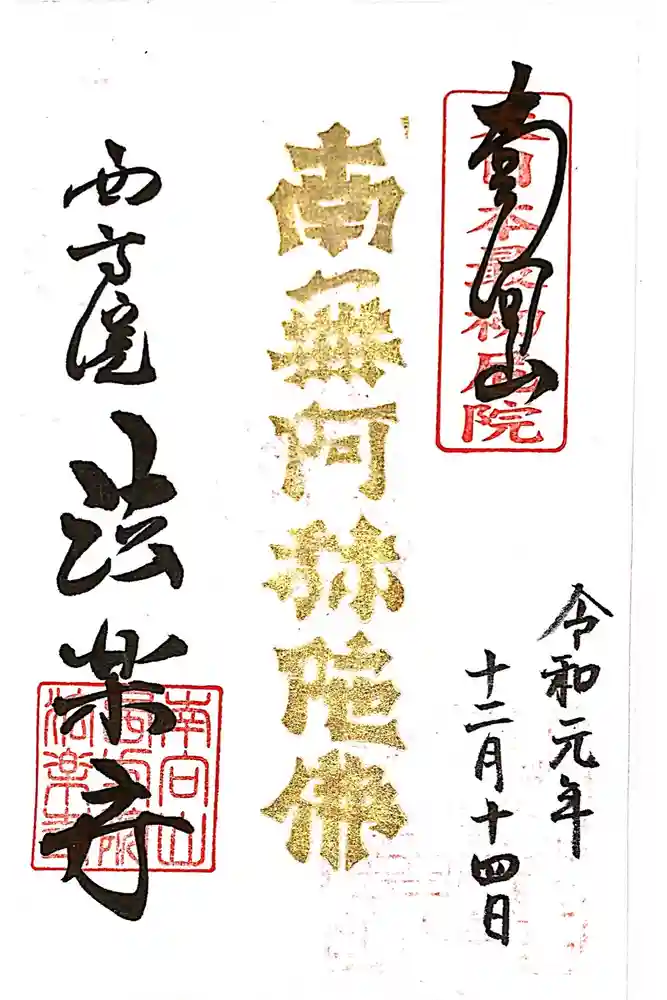 南向山
日本最初尼院
令和元年
十二月十四日
南無阿弥陀佛
西方院
法楽寺
南向山
法楽寺